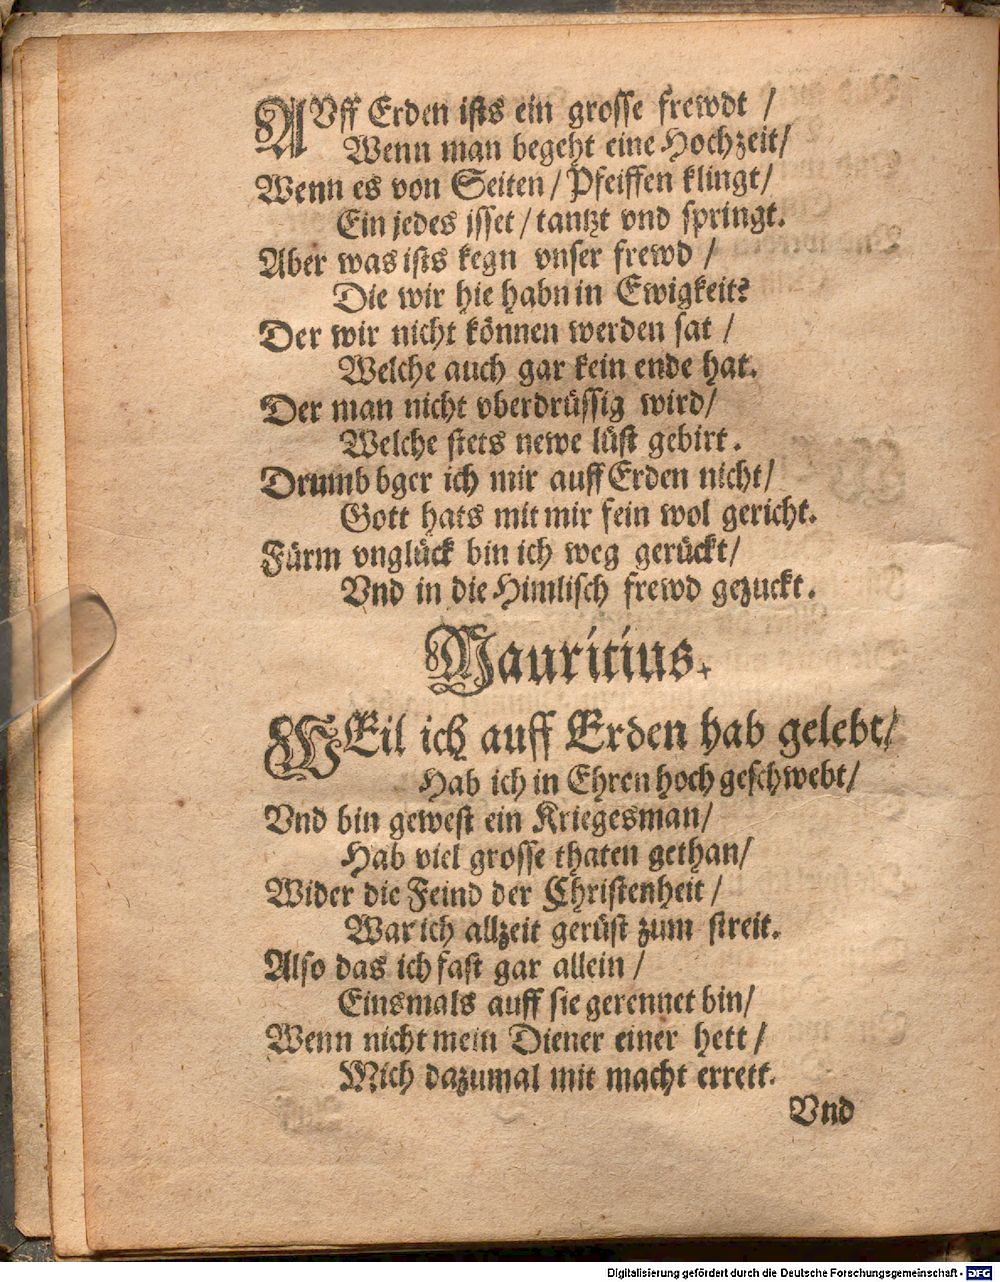 AVff Erden ists ein grosse frewdt /
Wenn man begeht eine Hochzeit/
Wenn es von Seiten / Pfeiffen klingt/
Ein jedes isset / tantzt vnd springt.
Aber was ists kegn vnser frewd /
Die wir hie habn in Ewigkeit?
Der wir nicht können werden sat /
Welche auch gar kein ende hat.
Der man nicht vberdrüssig wird/
Welche stets newe lüst gebirt.
Drumb bger ich mir auff Erden nicht/
Gott hats mit mir fein wol gericht.
Fürm vnglück bin ich weg gerückt/
Vnd in die Himlisch frewd gezuckt.
Mauritius.
WEil ich auff Erden hab gelebt/
Hab ich in Ehren hoch geschwebt/
Vnd bin gewest ein Kriegesman/
Hab viel grosse thaten gethan/
Wider die Feind der Christenheit /
War ich allzeit gerüst zum streit.
Also das ich fast gar allein /
Einsmals auff sie gerennet bin/
Wenn nicht mein Diener einer hett /
Mich dazumal mit macht errett.
Vnd
Digitalisierung gefördert durch die Deutsche Forschungsgemeinschaft - DFG